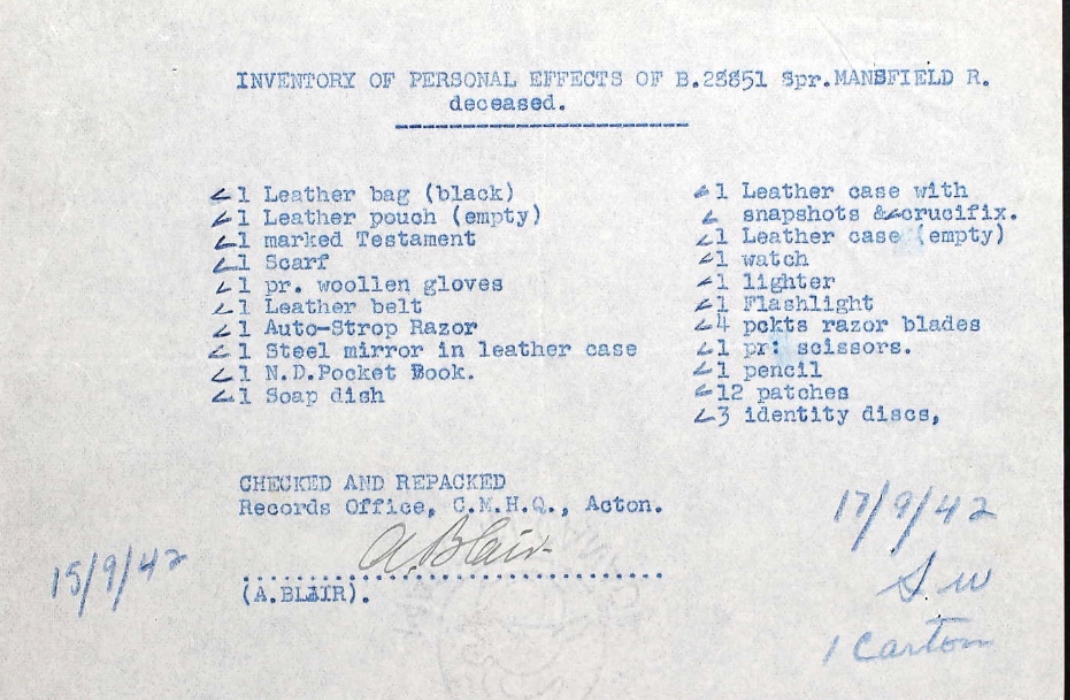 INVENTORY OF PERSONAL EFFECTS OF B.28851 Spr.MANSFIELD R.
deceased.
1 Leather bag (black)
1 Leather pouch (empty)
1 marked Testament
1 Scarf
1 pr. woollen gloves
1 Leather belt
1 Auto-Strop Razor
1 Steel mirror in leather case
1 N.D.Pocket Book.
1 Soap dish
1 Leather case with
snapshots & crucifix.
1 Leather case (empty)
1 watch
1 lighter
1 Flashlight
4 pckts razor blades
1 pr: scissors.
1 pencil
12 patches
3 identity discs,
CHECKED AND REPACKED
Records Office, C.M.H.Q., Acton.
A. Blair
(A.BLAIR).
15/9/42
17/9/42
S W
1 Carton